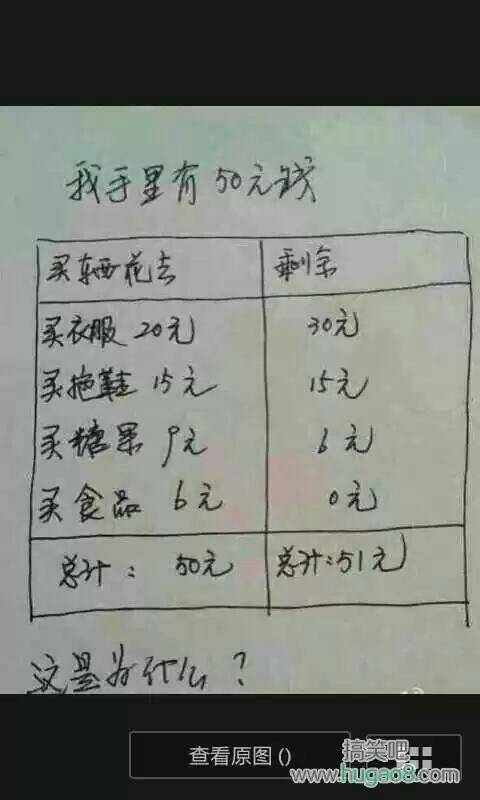 我手里有50元钱
买东西花去 剩余
买衣服 20元 30元
买拖鞋 15元 15元
买糖果 9元 6元
买食品 6元 0元
总计: 50元 总计:51元
这是为什么?
查看原图 ()
搞笑吧
www.hugao8.com